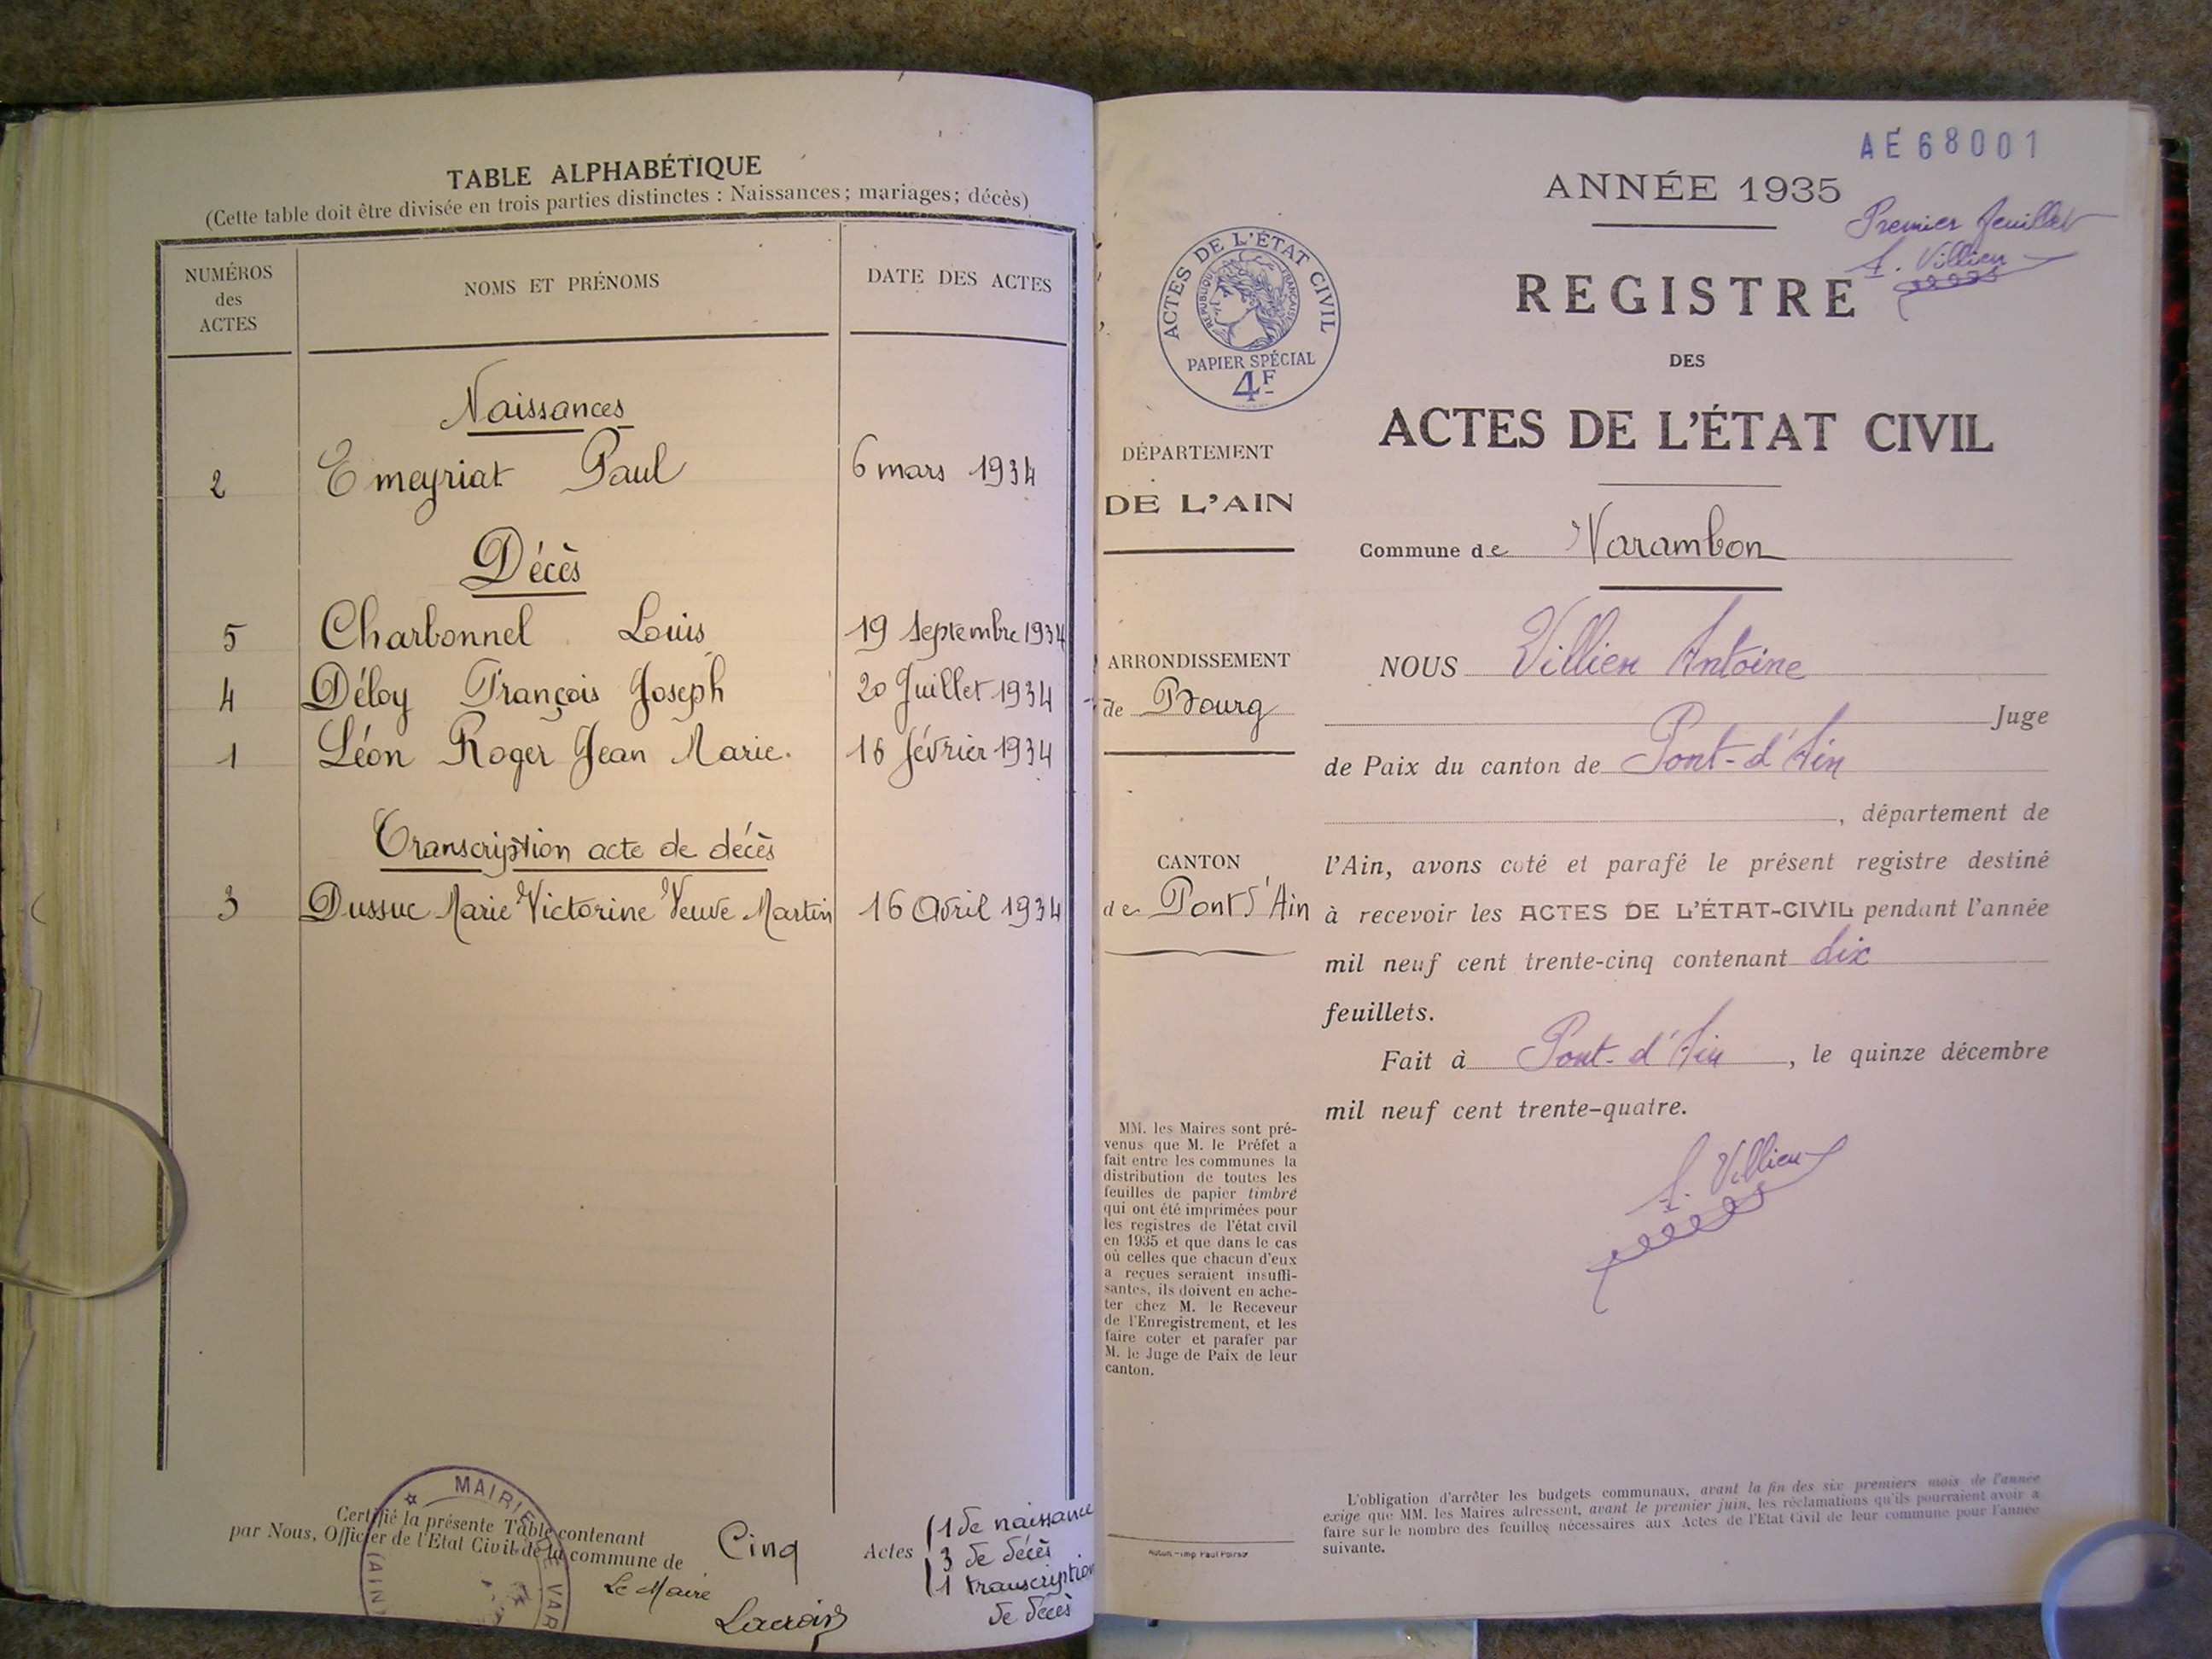 TABLE ALPHABÉTIQUE
(Cette table doit être divisée en trois parties distinctes : Naissances ; mariages ; décès)
NUMÉROS des ACTES
NOMS ET PRÉNOMS
DATE DES ACTES
Naissances
2 Emeyriat Paul 6 mars 1934
Décès
5 Charbonnel Louis 19 Septembre 1934
4 Déloy François Joseph 20 Juillet 1934
1 Léon Roger Jean Marie. 16 février 1934
Transcription acte de décès
3 Dussuc Marie Victorine Veuve Martin 16 Avril 1934
Certifié la présente Table contenant Cinq Actes
par Nous, Officier de l'Etat Civil de la commune de
1 de naissance
3 de décès
1 transcription
de décès
Le Maire
Lacroix
MAIRIE DE VAR
(AIN)
AE 68001
ANNÉE 1935
Premier feuillet
A. Villien
REGISTRE
DES
ACTES DE L'ÉTAT CIVIL
ACTES DE L'ÉTAT CIVIL
RÉPUBLIQUE FRANÇAISE
PAPIER SPÉCIAL
4F
DÉPARTEMENT
DE L'AIN
Commune de Varambon
ARRONDISSEMENT
de Bourg
CANTON
de Pont d'Ain
NOUS Villien Antoine
Juge
de Paix du canton de Pont-d'Ain
, département de
l'Ain, avons coté et parafé le présent registre destiné
à recevoir les ACTES DE L'ÉTAT-CIVIL pendant l'année
mil neuf cent trente-cinq contenant dix
feuillets.
Fait à Pont-d'Ain, le quinze décembre
mil neuf cent trente-quatre.
A. Villien
MM. les Maires sont pré-
venus que M. le Préfet a
fait entre les communes la
distribution de toutes les
feuilles de papier timbré
qui ont été imprimées pour
les registres de l'état civil
en 1935 et que dans le cas
où celles que chacun d'eux
a reçues seraient insuffi-
santes, ils doivent en ache-
ter chez M. le Receveur
de l'Enregistrement, et les
faire coter et parafer par
M. le Juge de Paix de leur
canton.
L'obligation d'arrêter les budgets communaux, avant la fin des six premiers mois de l'année
exige que MM. les Maires adressent, avant le premier juin, les réclamations qu'ils pourraient avoir à
faire sur le nombre des feuilles nécessaires aux Actes de l'Etat Civil de leur commune pour l'année
suivante.